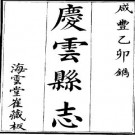 咸豐乙卯鐫
慶雲縣志
海雲堂崔藏板